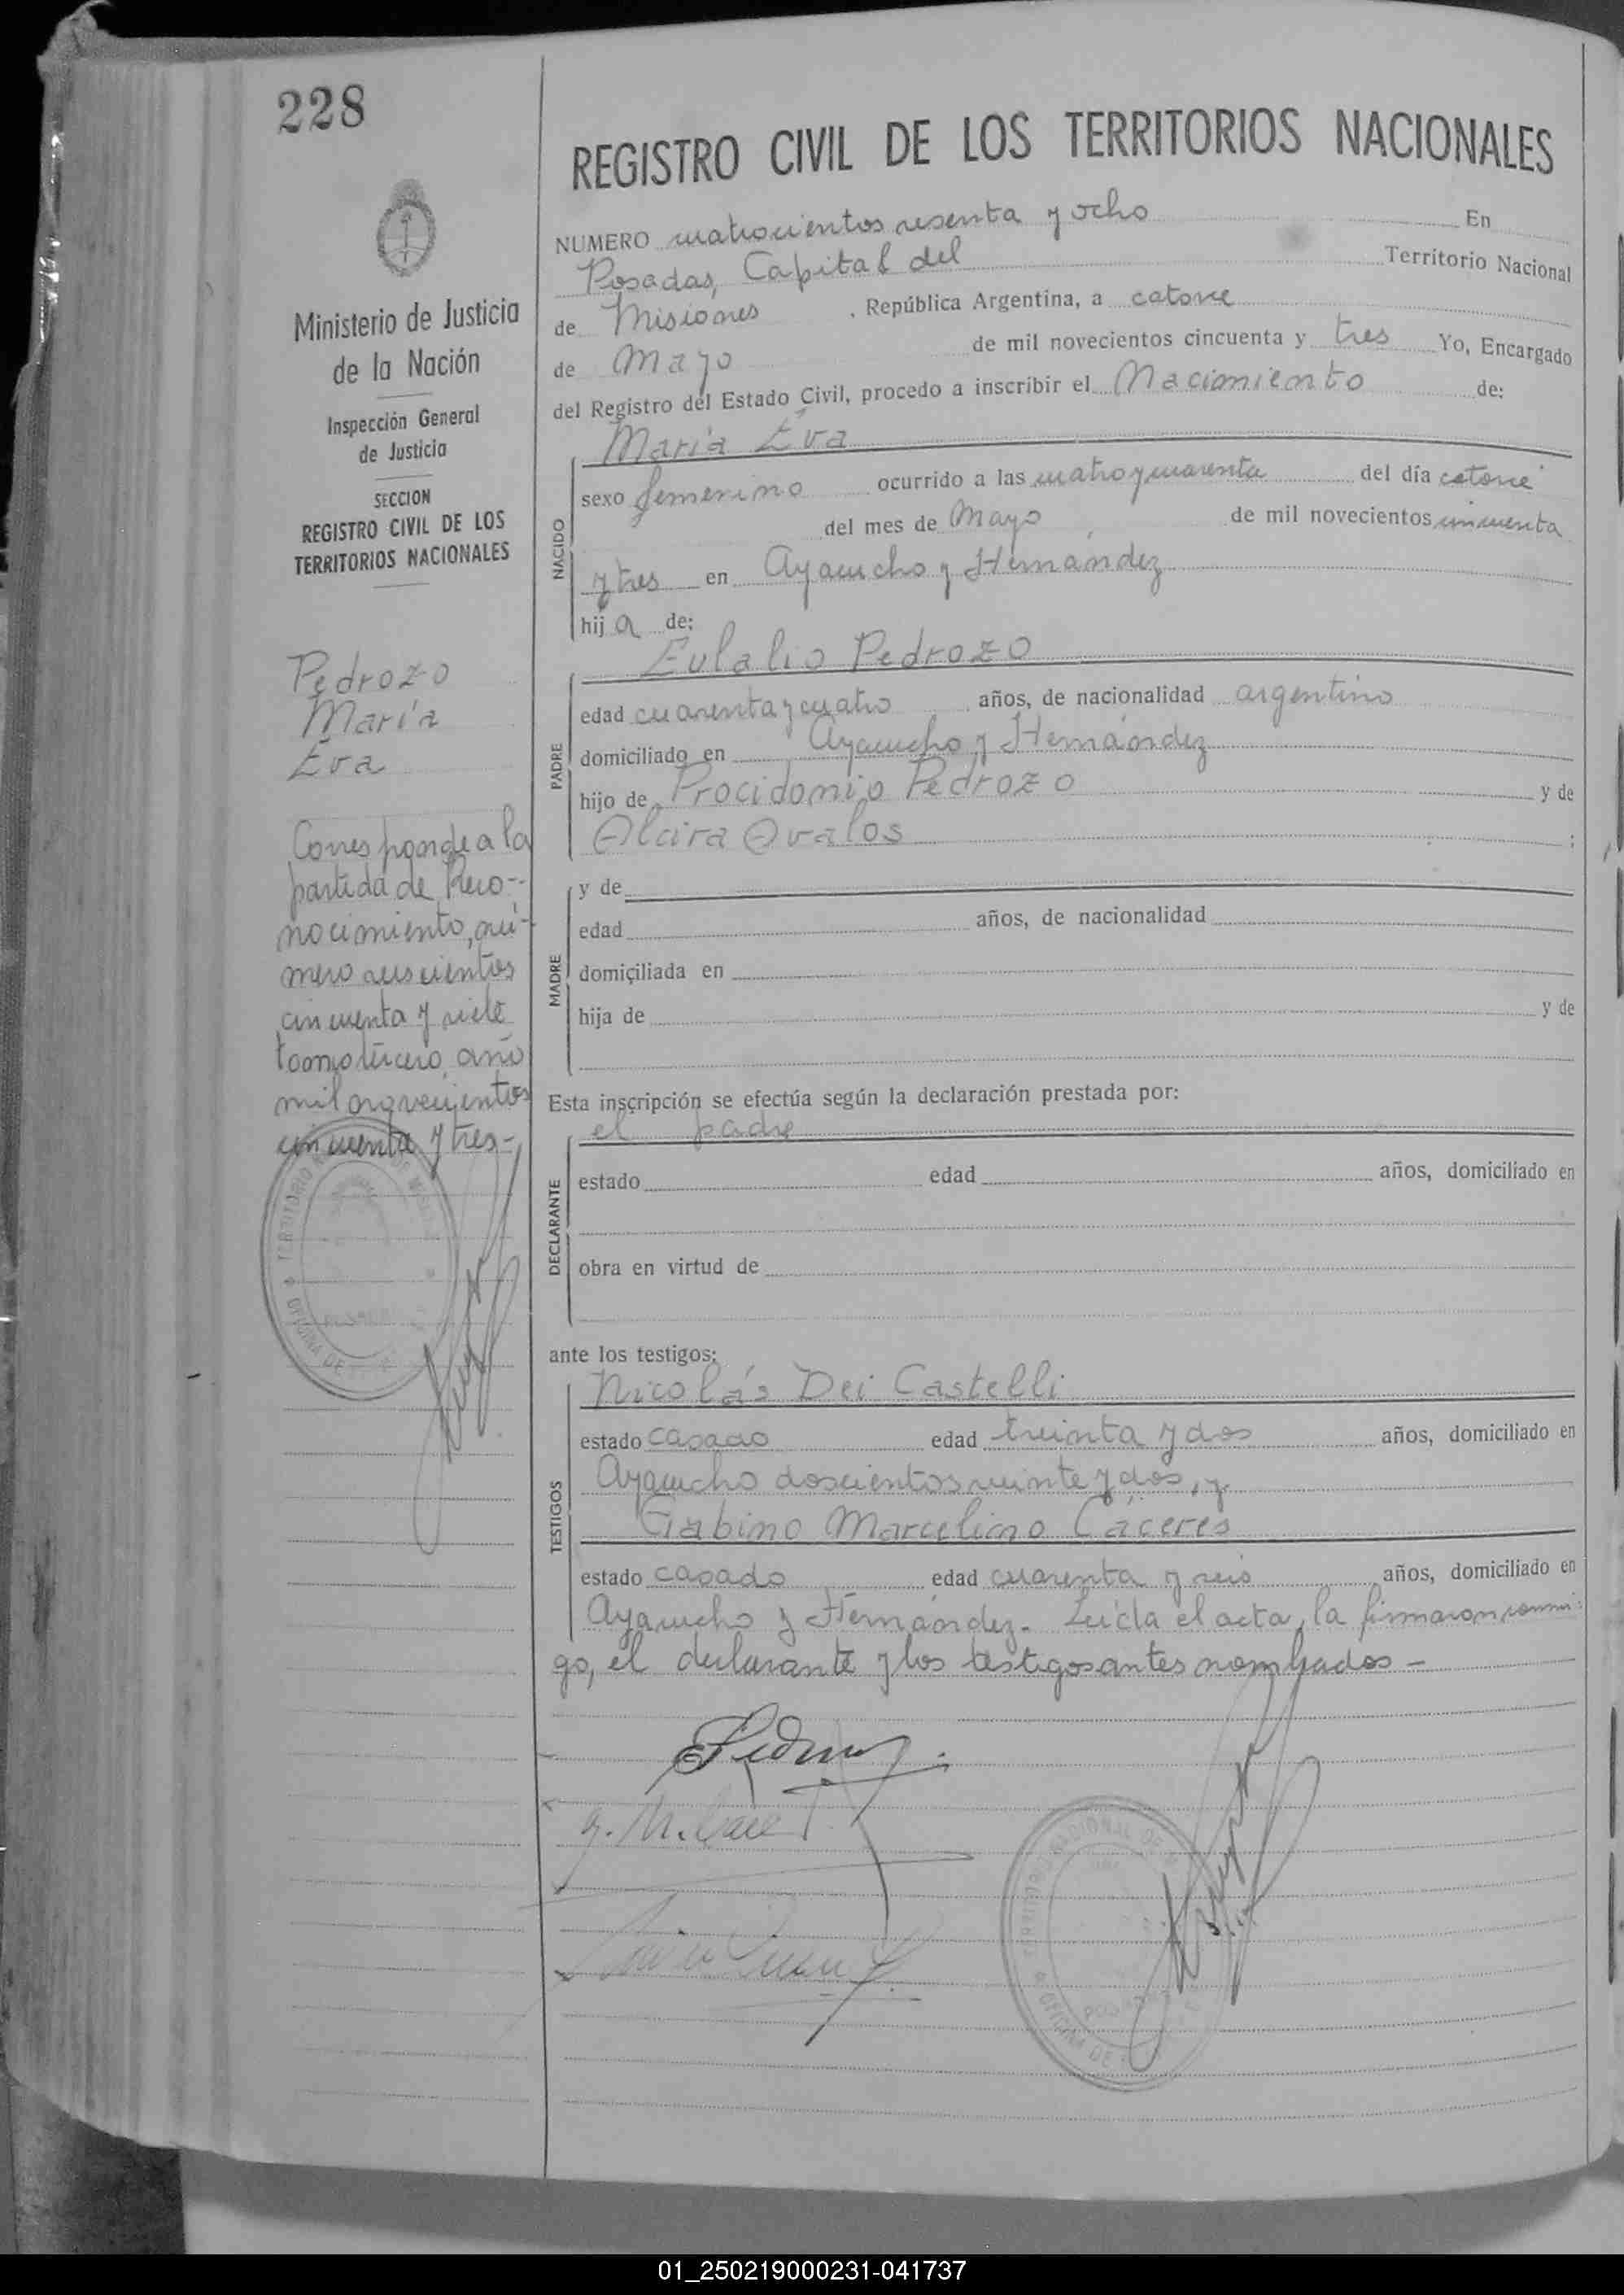 228
Ministerio de Justicia
de la Nación
Inspección General
de Justicia
SECCION
REGISTRO CIVIL DE LOS
TERRITORIOS NACIONALES
Pedrozo
María
Eva
Corresponde a la
partida de Reco-
nocimiento, nú-
mero seiscientos
cincuenta y siete
tomo tercero, año
mil novecientos
cincuenta y tres-
REGISTRO CIVIL DE LOS TERRITORIOS NACIONALES
NUMERO cuatrocientos sesenta y ocho En
Posadas, Capital del Territorio Nacional
de Misiones, República Argentina, a catorce
de Mayo de mil novecientos cincuenta y tres Yo, Encargado
del Registro del Estado Civil, procedo a inscribir el Nacimiento de:
María Eva
NACIDO
sexo femenino ocurrido a las cuatro y cuarenta del día catorce
del mes de Mayo de mil novecientos cincuenta
y tres en Ayacucho y Hernández
hija de:
Eulalio Pedrozo
PADRE
edad cuarenta y cuatro años, de nacionalidad argentino
domiciliado en Ayacucho y Hernández
hijo de Procidonio Pedrozo y de
Alcira Avalos;
MADRE
y de
edad años, de nacionalidad
domiciliada en
hija de y de
Esta inscripción se efectúa según la declaración prestada por:
el padre
DECLARANTE
estado edad años, domiciliado en
obra en virtud de
ante los testigos:
Nicolás Dei Castelli
TESTIGOS
estado casado edad treinta y dos años, domiciliado en
Ayacucho doscientos veinte y dos, y
Gabino Marcelino Cáceres
estado casado edad cuarenta y seis años, domiciliado en
Ayacucho y Hernández. Leída el acta, la firmaron conmi-
go, el declarante y los testigos antes nombrados -
01_250219000231-041737